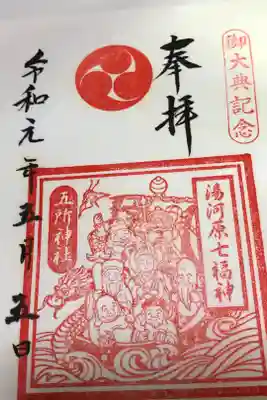 御大典記念
奉拝
湯河原七福神
五所神社
令和元年五月五日